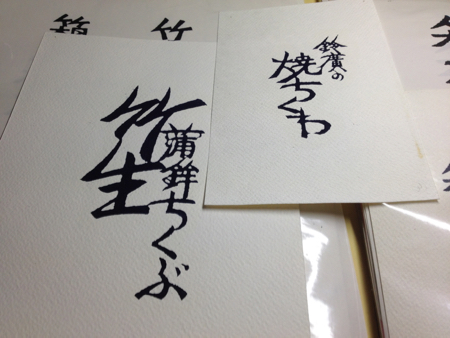 鈴廣の
焼ちくわ
蒲鉾ちくぶ
竹生